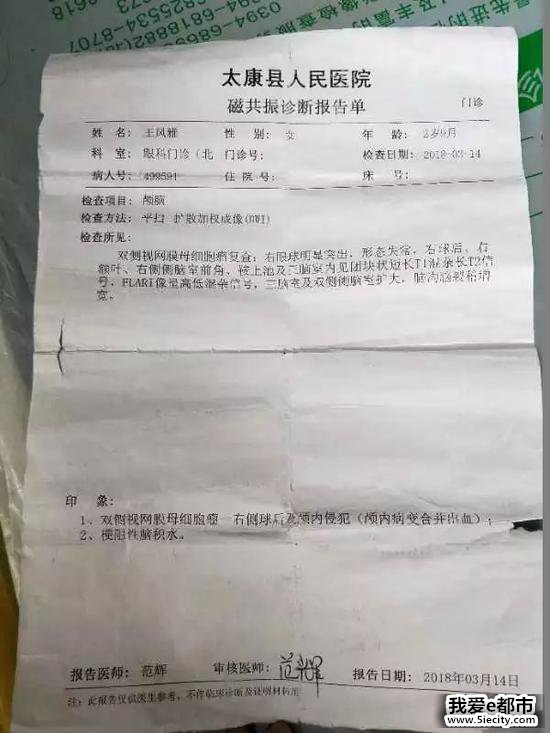 太康县人民医院
磁共振诊断报告单
门诊
姓 名: 王凤雅 性 别: 女 年 龄: 2岁9月
科 室: 眼科门诊(北 门诊号: 检查日期: 2018-03-14
病人号: 499591 住 院 号: 床 号:
检查项目: 颅脑
检查方法: 平扫 扩散加权成像(DWI)
检查所见:
双侧视网膜母细胞瘤复查: 右眼球明显突出, 形态失常, 右球后、右
额叶、右侧侧脑室前角、鞍上池及三脑室内见团块状短长T1混杂长T2信
号, FLARI像呈高低混杂信号, 三脑室及双侧侧脑室扩大, 脑沟脑裂稍增
宽。
印 象:
1、双侧视网膜母细胞瘤 右侧球后及颅内侵犯(颅内病变合并出血);
2、梗阻性脑积水。
报告医师: 范辉 审核医师: 范辉 报告日期: 2018年03月14日
注: 此报告仅供医生参考, 不作临床诊断及证明材料用
我爱e都市
www.5iecity.com